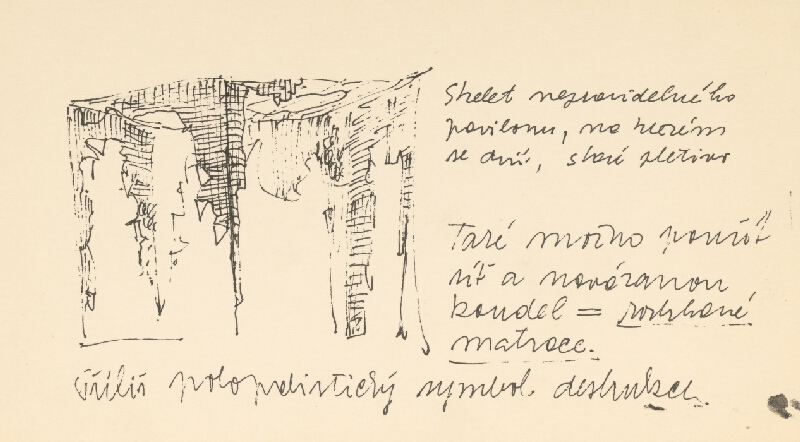 Skelet nepravidelného
pavilonu, na kterém
se drží, staré pletivo
Také možno použít
síť a navázanou
koudel = roztrhané
matrace.
Příliš symbol destrukce.